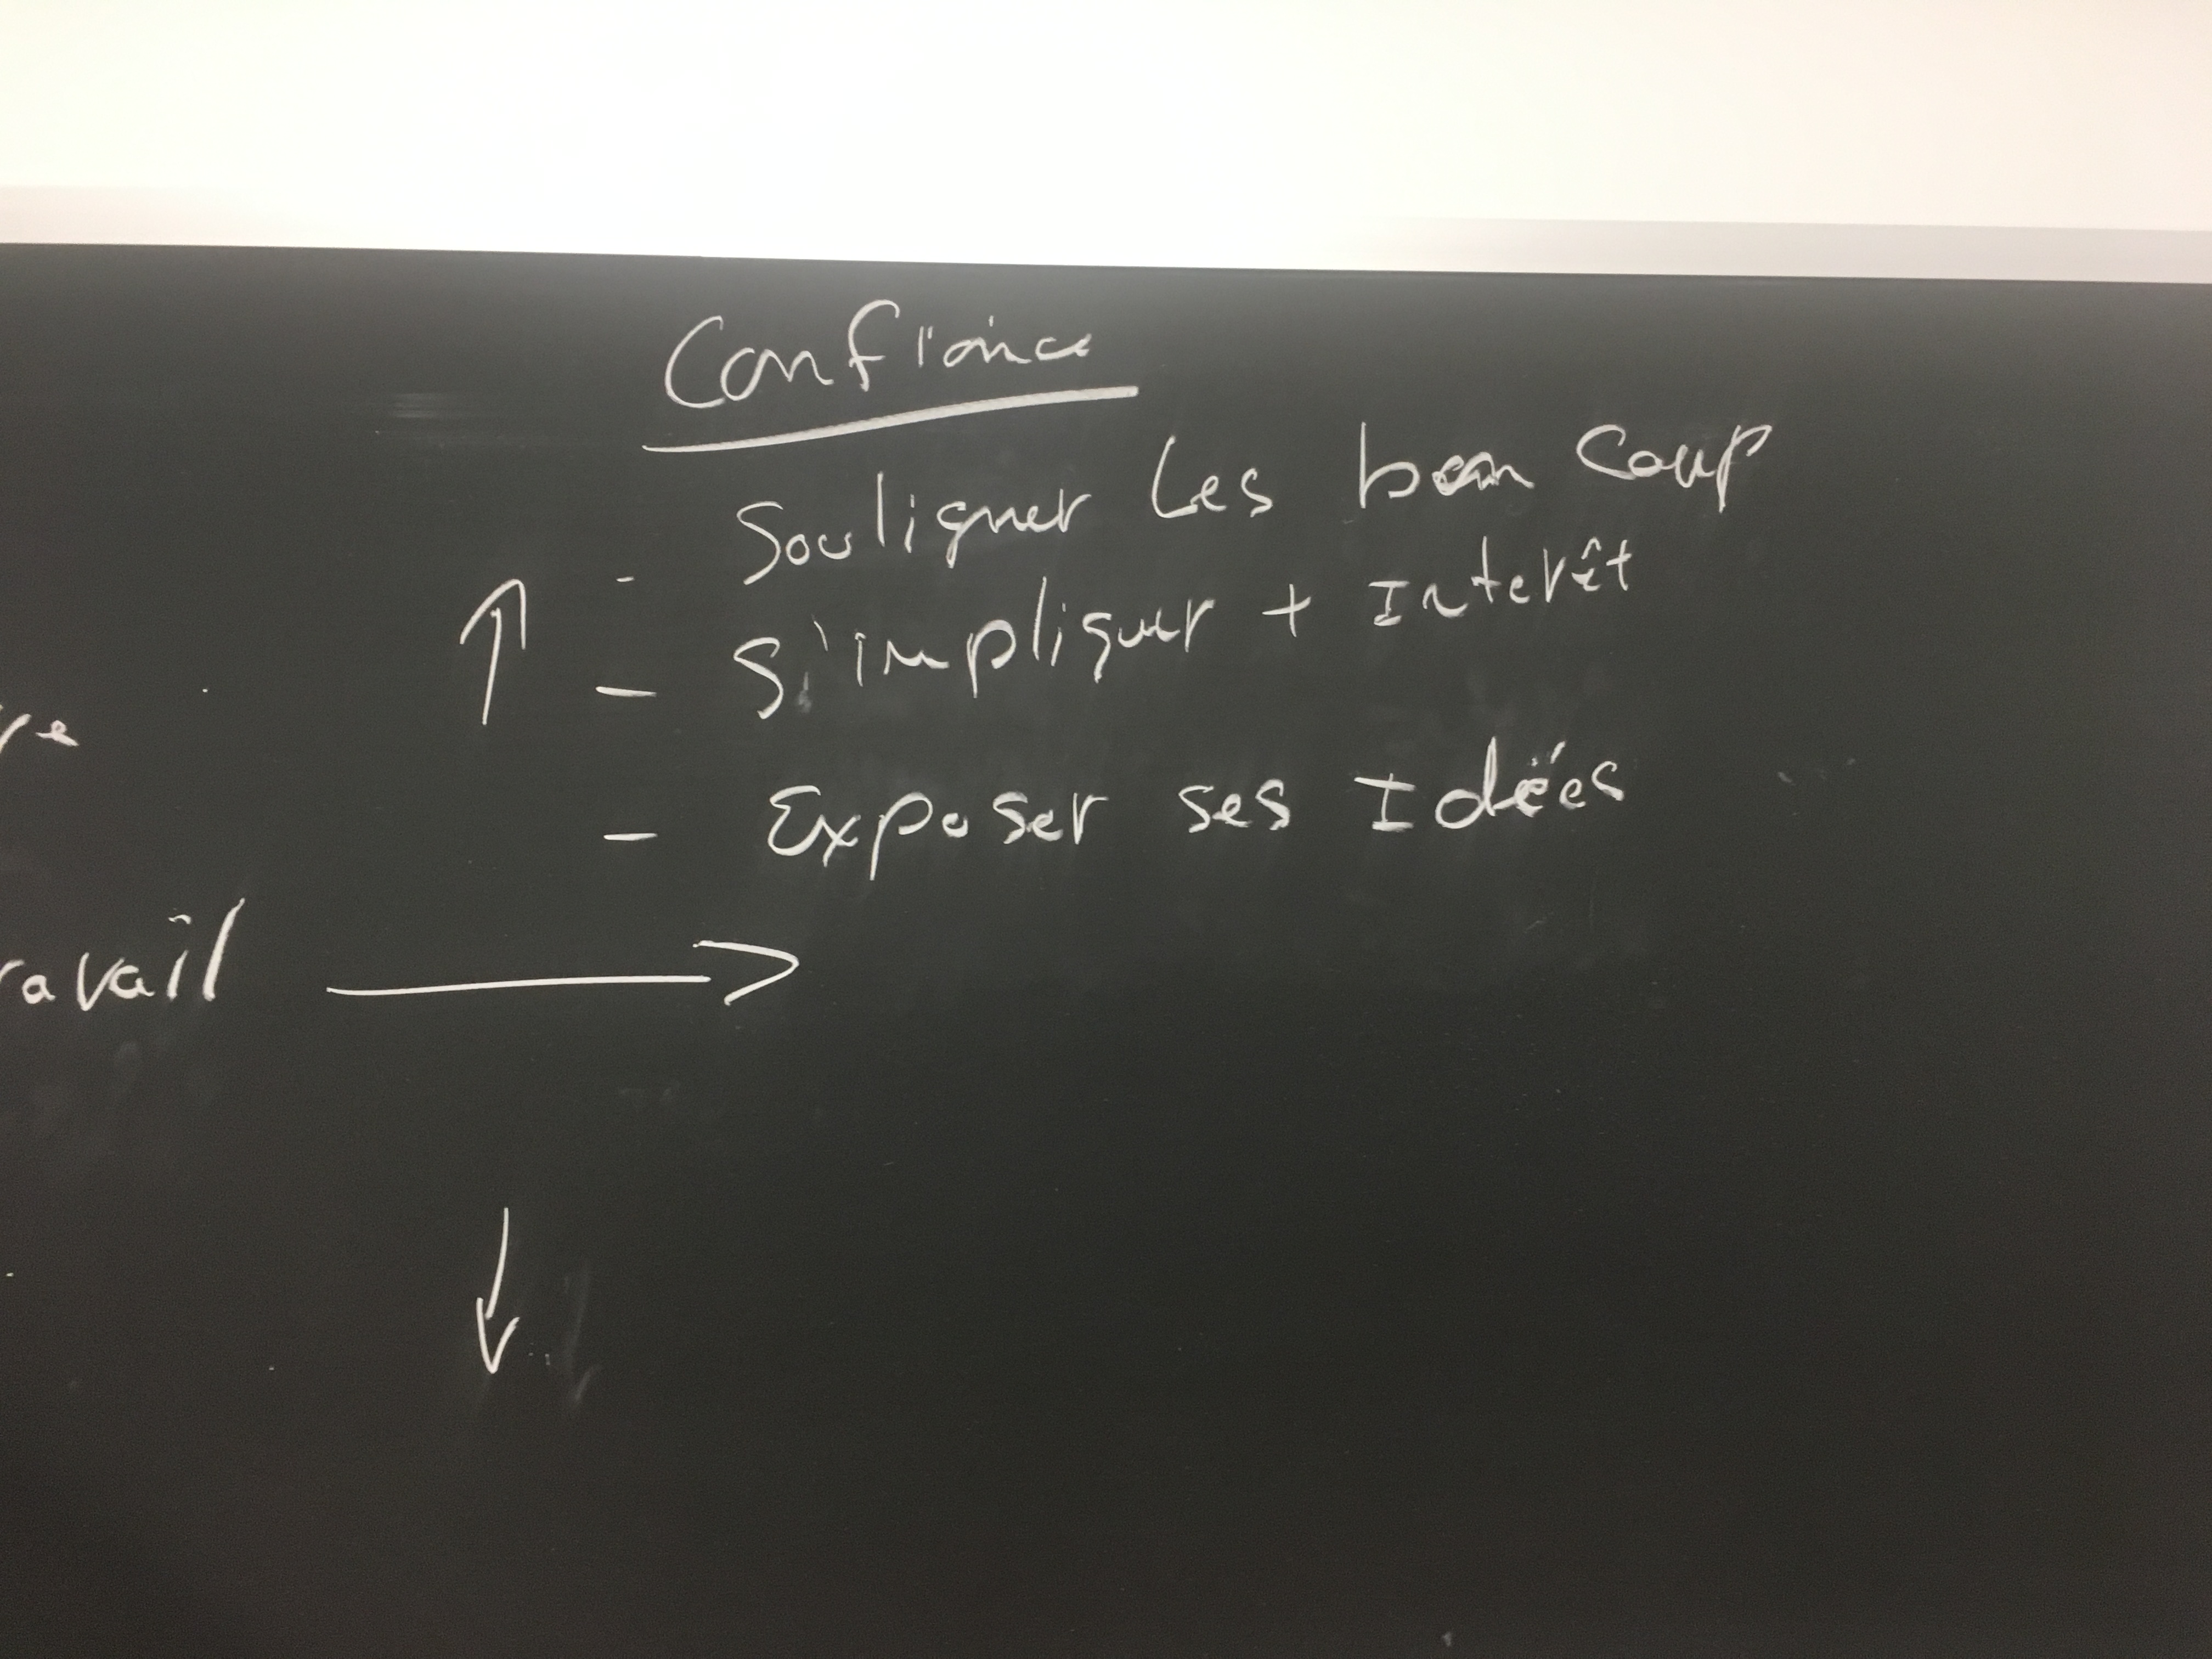 Confiance
- Souligner les bon coup
↑ - S'impliquer + Interêt
- Exposer ses Idées
ravail →
↓